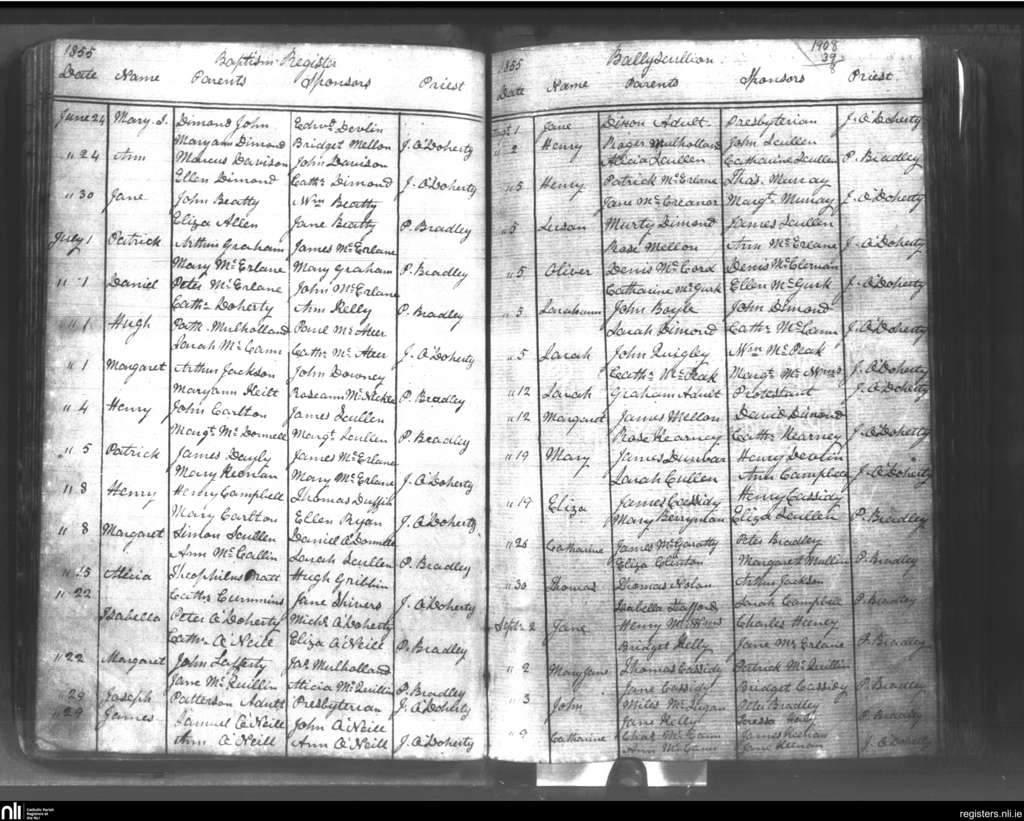 1855
Baptism Register
Date Name Parents Sponsors Priest
June 24 Mary. S. Dimond John Edwd. Devlin
Maryann Dimond Bridget Mellon J. O'Doherty
" 24 Ann Marcus Davison John Davison
Ellen Dimond Cathe. Dimond J. O'Doherty
" 30 Jane John Beatty Wm Beatty
Eliza Allen Jane Beatty P. Bradley
July 1 Patrick Arthur Graham James McErlane
Mary McErlane Mary Graham P. Bradley
" 1 Daniel Peter McErlane John McErlane
Cathe. Doherty Ann Kelly P. Bradley
" 1 Hugh Patk. Mulholland Paul McAteer
Sarah McCann Cathe. McAteer J. O'Doherty
" 1 Margaret Arthur Jackson John Downey
Maryann Roseann McNickle P. Bradley
" 4 Henry John Carlton James Scullen
Margt. McDonnell Margt. Scullen P. Bradley
" 5 Patrick James James McErlane
Mary Keenan Mary McErlane J. O'Doherty
" 8 Henry Henry Campbell Thomas Duffin
Mary Carlton Ellen Ryan J. O'Doherty
" 8 Margaret Simon Scullen Daniel O'Donnell
Ann McCallin Sarah Scullen P. Bradley
" 15 Alicia Theophilus Pratt Hugh Gribbin
" 22 Cathe. Cummins Jane Shivers J. O'Doherty
Isabella Peter O'Doherty Michl. O'Doherty
Cathe. O'Neill Eliza O'Neill P. Bradley
" 22 Margaret John Lafferty Jas. Mulholland
Jane McQuillin Alicia McQuillin P. Bradley
" 29 Joseph Patterson Adult Presbyterian J. O'Doherty
" 29 James Samuel O'Neill John O'Neill
Ann O'Neill Ann O'Neill J. O'Doherty
1855
Ballyscullion
1908
39
8
Date Name Parents Sponsors Priest.
Augt. 1 Jane Dixon Adult. Presbyterian J. O'Doherty
" 2 Henry Roger Mulholland John Scullen
Alicia Scullen Catharine Scullen P. Bradley
" 5 Henry Patrick McErlane Thos. Murray
Jane McCreanor Margt. Murray J. O'Doherty
" 5 Susan Murty Dimond James Scullen
Rose Mellon Ann McErlane J. O'Doherty
" 5 Oliver Denis McCord Denis McClernan
Catharine McGurk Ellen McGurk J. O'Doherty
" 3 Sarahann John Boyle John Dimond
Sarah Dimond Cathe. McCann J. O'Doherty
" 5 Sarah John Quigley Wm McPeak
Cathe. McPeak Margt. J. O'Doherty
" 12 Sarah Graham Adult Protestant J. O'Doherty
" 12 Margaret James Mellon David Dimond
Rose Kearney Cathe. Kearney J. O'Doherty
" 19 Mary James Dunbar Henry Devlin
Sarah Cullen Ann Campbell J. O'Doherty
" 19 Eliza James Cassidy Henry Cassidy
Mary Berryman Eliza Scullen P. Bradley
" 26 Catharine James McGaratty Peter Bradley
Eliza Clinton Margaret Mullin P. Bradley
" 30 Thomas Thomas Nolan Arthur Jackson
Isabella Stafford Sarah Campbell P. Bradley
Septr. 2 Jane Henry Charles Heeney
Bridget Kelly Jane McErlane P. Bradley
" 2 Maryjane Thomas Cassidy Patrick McQuillin
Jane Cassidy Bridget Cassidy P. Bradley
" 3 John Miles McGigan Peter Bradley
Jane Kelly Teressa P. Bradley
" 9 Catharine Chas. McCann James Keenan
Ann McCann Jane Keenan J. O'Doherty
nli Catholic Parish
Registers at
the NLI
registers.nli.ie